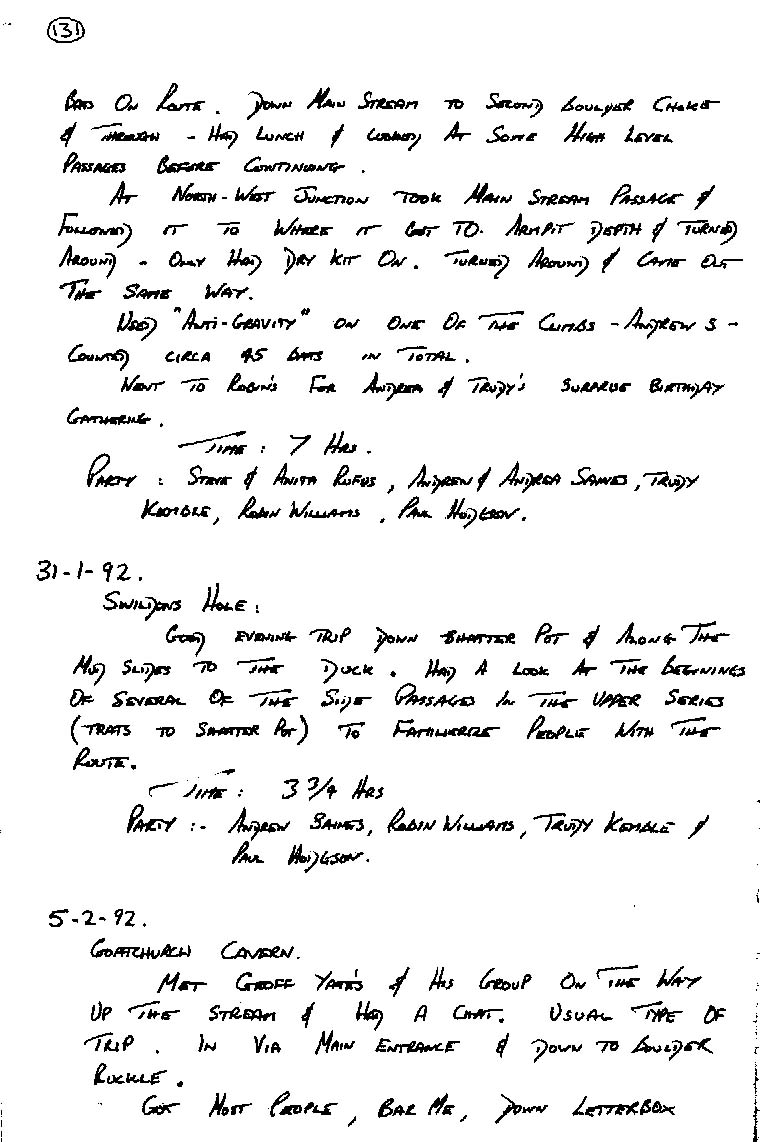 131
Bats On Route. Down Main Stream to Second Boulder Choke
& Through - Had Lunch & Looked At Some High Level
Passages Before Continuing.
At North-West Junction Took Main Stream Passage &
Followed it to Where it Got To Armpit Depth & Turned
Around - Only Had Dry Kit On. Turned Around & Came Out
The Same Way.
Used "Anti-Gravity" on One Of The Climbs - Andrew S -
Counted circa 45 Bats in Total.
Went To Robin's For Andrea & Trudy's Surprise Birthday
Gathering.
Time: 7 Hrs.
Party: Steve & Anita Rufus, Andrew & Andrea Saines, Trudy
Kemble, Robin Williams, Paul Hodgson.
31-1-92.
Swildons Hole:
Good evening Trip Down Shatter Pot & Along The
Mud Slides To The Duck. Had A Look At The Beginings
Of Several Of The Side Passages In The Upper Series
(Trats to Shatter Pot) To Familierize People With The
Route.
Time: 3 3/4 Hrs
Party:- Andrew Saines, Robin Williams, Trudy Kemble &
Paul Hodgson.
5-2-92.
Goatchurch Cavern.
Met Geoff Yates & His Group On The Way
Up The Stream & Had A Chat. Usual Type Of
Trip. In Via Main Entrance & Down To Boulder
Ruckle.
Got Most People, Bar Me, Down Letterbox